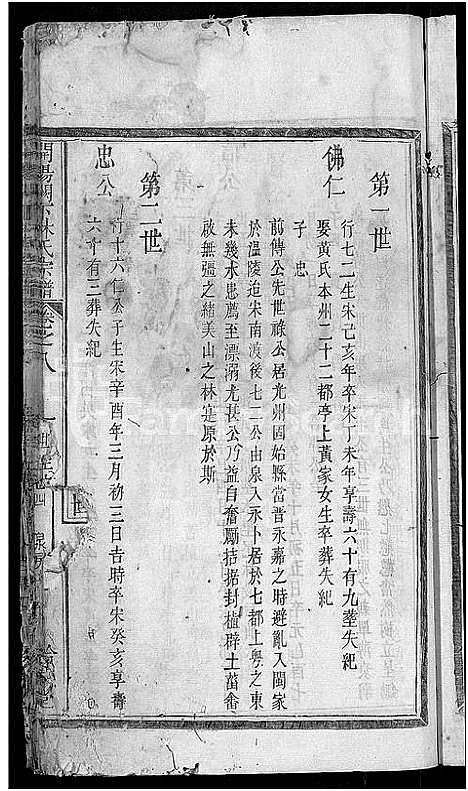 第一世
佛仁
行七二生宋己亥年卒宋丁未年享壽六十有九塟失紀
娶黃氏本州二十二都亭上黃家女生卒葬失紀
子忠
前傳公先世祿公居光州固始縣當晉永嘉之時避亂入閩家
於溫陵迨宋南渡後七二公由泉入永卜居於七都上塲之東
未幾水患薦至漂溺尤甚公乃益自奮勵拮据封植辟土菑畬
啟無彊之緒美山之林寔原於斯
第二世
忠公
行十六仁公子生宋辛酉年三月初三日吉時卒宋癸亥享壽
六十有三葬失紀
林氏宗譜
卷之八